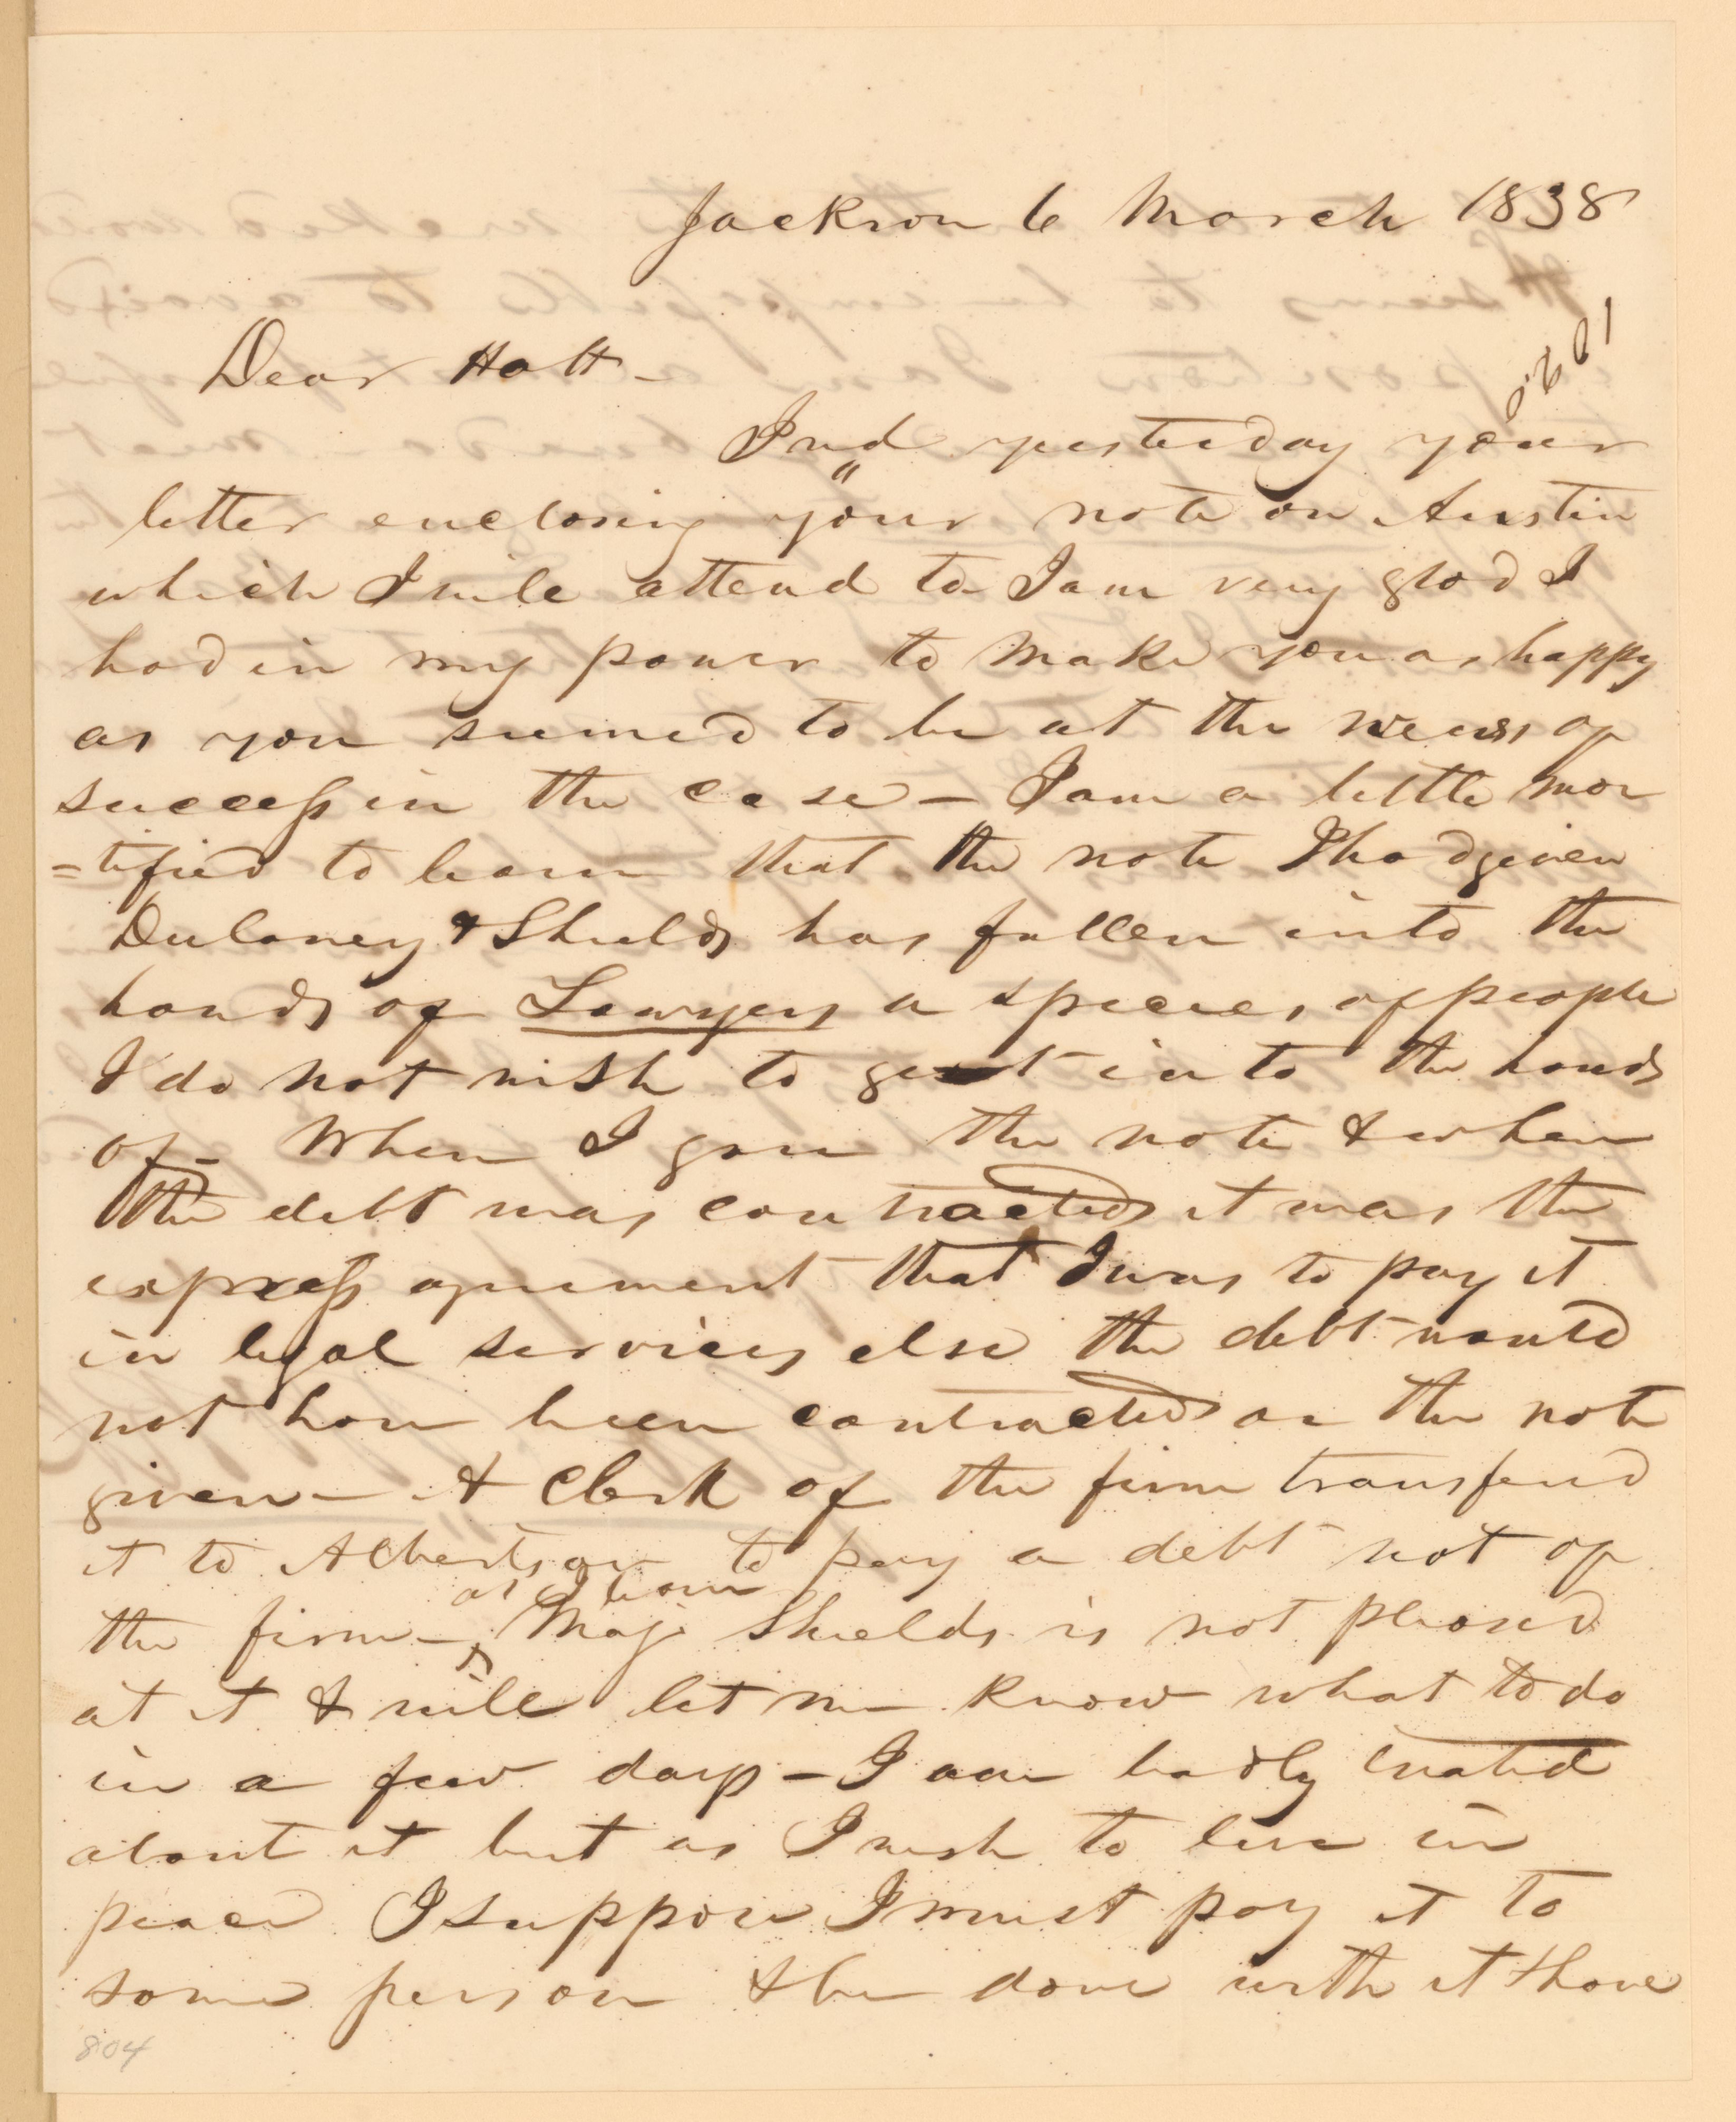 Jackson 6 March 1838
Dear Holt -
I recd yesterday your
letter enclosing your note on Austin
which I will attend to I am very glad I
had in my power to make you as happy
as you seemed to be at the news of
success in the case - I am a little mor
=tified to learn that the note I had given
Dulaney & Shields has fallen into the
hands of Lawyers a species of people
I do not wish to get into the hands
of - When I gave the note & when
the debt was contracted it was the
express agreement that I was to pay it
in legal services else the debt would
not have been contracted or the note
given - A Clerk of the firm transferd
it to Albertson to pay a debt not of
as I learn
the firm - Maj Shields is not pleased
at it & will let me know what to do
in a few days - I am badly treated
about it but as I wish to live in
peace I suppose I must pay it to
some person & be done with it I have
804